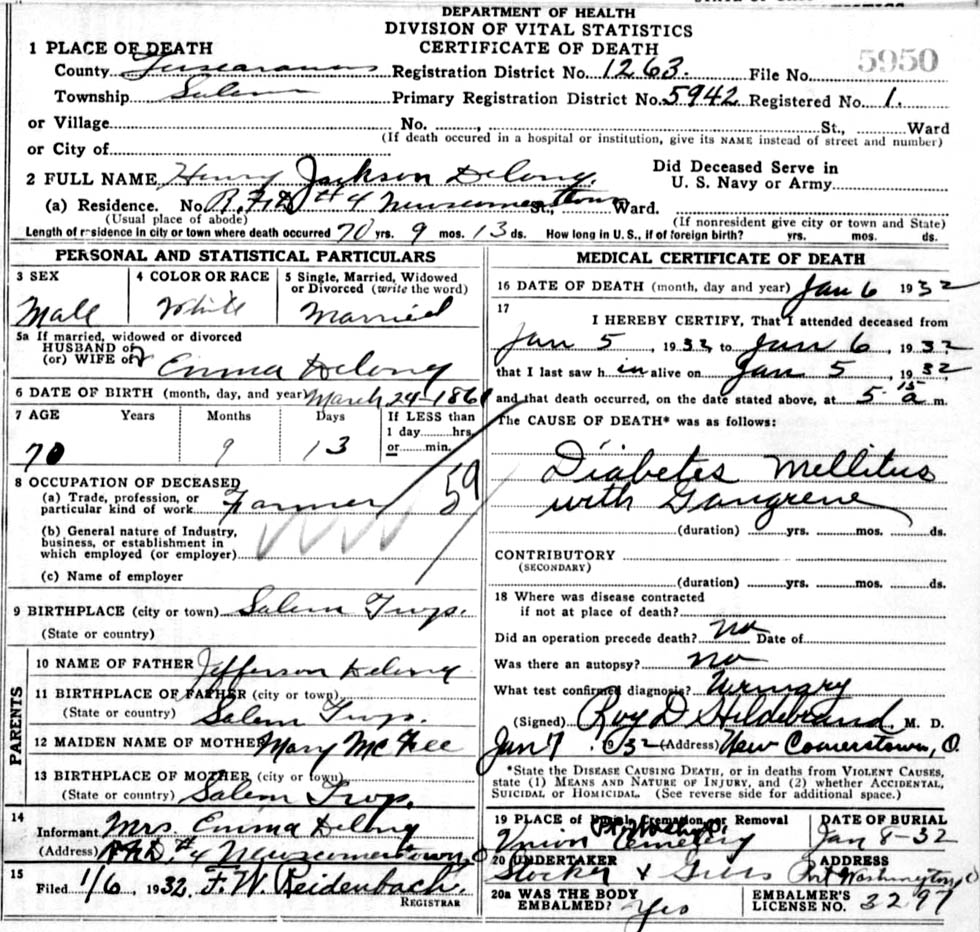 DEPARTMENT OF HEALTH
DIVISION OF VITAL STATISTICS
CERTIFICATE OF DEATH
1 PLACE OF DEATH
County Tuscarawas Registration District No. 1263. File No. 5950
Township Salem Primary Registration District No. 5942 Registered No. 1.
or Village No. St., Ward
(If death occured in a hospital or institution, give its NAME instead of street and number)
or City of
2 FULL NAME Henry Jackson Delong. Did Deceased Serve in U. S. Navy or Army
(a) Residence. No. R.F.D #4 Newcomerstown St., Ward.
(Usual place of abode) (If nonresident give city or town and State)
Length of residence in city or town where death occurred 70 yrs. 9 mos. 13 ds. How long in U. S., if of foreign birth? yrs. mos. ds.
PERSONAL AND STATISTICAL PARTICULARS
3 SEX
Male
4 COLOR OR RACE
White
5 Single, Married, Widowed
or Divorced (write the word)
Married
5a If married, widowed or divorced
HUSBAND of
(or) WIFE of Emma Delong
6 DATE OF BIRTH (month, day, and year) March 24-1861
7 AGE Years Months Days If LESS than
1 day hrs.
or min.
70 9 13
8 OCCUPATION OF DECEASED
(a) Trade, profession, or
particular kind of work Farmer
59
(b) General nature of Industry,
business, or establishment in
which employed (or employer)
(c) Name of employer
9 BIRTHPLACE (city or town) Salem Twp.
(State or country)
PARENTS
10 NAME OF FATHER Jefferson Delong
11 BIRTHPLACE OF FATHER (city or town)
(State or country) Salem Twp.
12 MAIDEN NAME OF MOTHER Mary McFee
13 BIRTHPLACE OF MOTHER (city or town)
(State or country) Salem Twp.
14
Informant Mrs. Emma Delong
(Address) R.F.D. #4 Newcomerstown, O
15
Filed 1/6, 1932, F.W. Reidenbach.
REGISTRAR
MEDICAL CERTIFICATE OF DEATH
16 DATE OF DEATH (month, day and year) Jan 6 1932
17
I HEREBY CERTIFY, That I attended deceased from
Jan 5, 1932, to Jan 6, 1932
that I last saw h im alive on Jan 5, 1932
and that death occurred, on the date stated above, at 5 15 a m.
The CAUSE OF DEATH* was as follows:
Diabetes Mellitus
with Gangrene
(duration) yrs. mos. ds.
CONTRIBUTORY
(SECONDARY)
(duration) yrs. mos. ds.
18 Where was disease contracted
if not at place of death?
Did an operation precede death? no Date of
Was there an autopsy? no
What test confirmed diagnosis?
(Signed) Roy D Hildebrand M. D.
Jan 7, 1932 (Address) New Comerstown, O.
*State the DISEASE CAUSING DEATH, or in deaths from VIOLENT CAUSES,
state (1) MEANS AND NATURE OF INJURY, and (2) whether ACCIDENTAL,
SUICIDAL OR HOMICIDAL. (See reverse side for additional space.)
19 PLACE OF Burial, Cremation or Removal
Union Cemetery
DATE OF BURIAL
Jan 8-32
20 UNDERTAKER
Stocker &
ADDRESS
Port Washington, O
20a WAS THE BODY
EMBALMED? Yes
EMBALMER'S
LICENSE NO. 3297